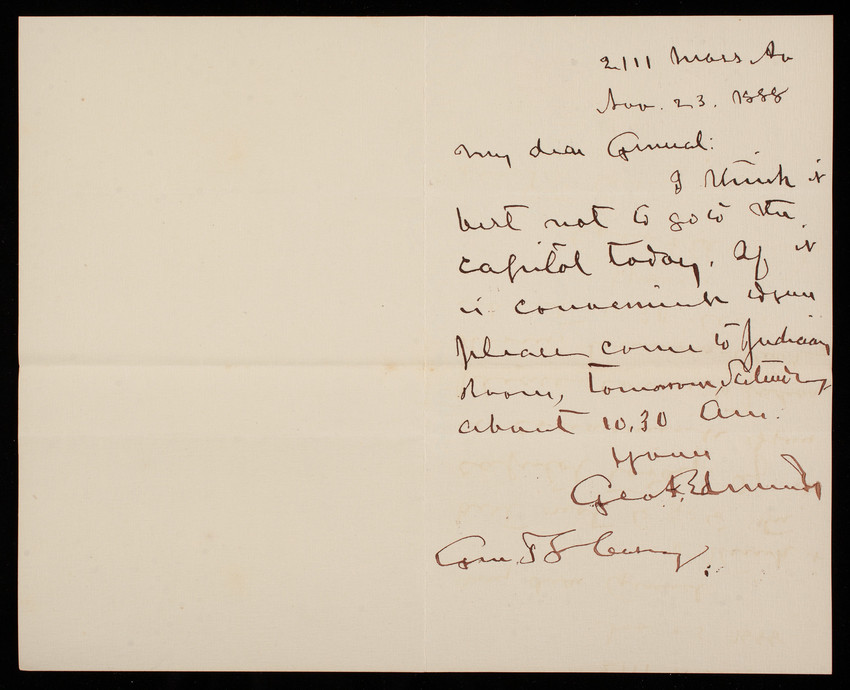 2111 Mass Av
Nov. 23. 1888
My dear General:
I think it
best not to go to the
capitol today. If it
is convenient
please come to Judiciary
Room, tomorrow, Saturday
about 10,30 Am.
Yours
Geo F. Edmunds
Gen. T L Casey